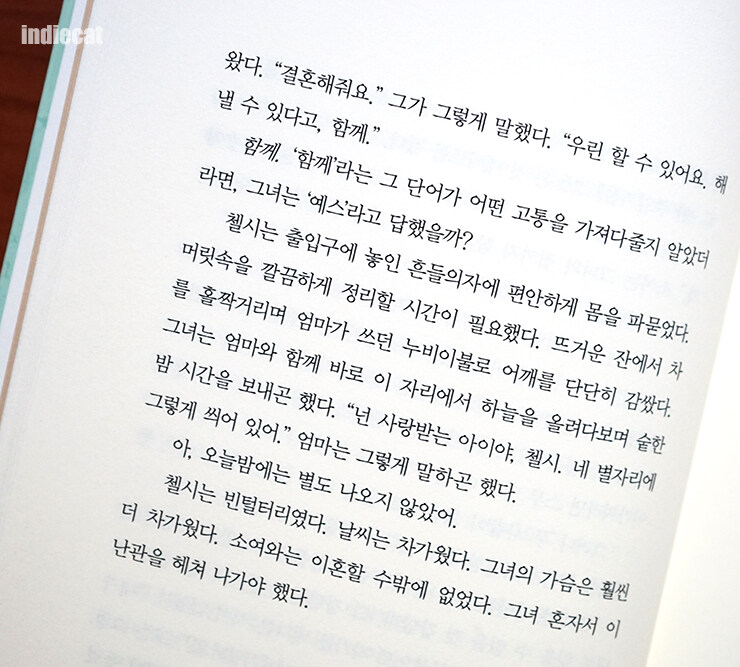 indiecat
왔다. “결혼해줘요.” 그가 그렇게 말했다. “우린 할 수 있어요. 해
낼 수 있다고, 함께.”
함께. ‘함께’라는 그 단어가 어떤 고통을 가져다줄지 알았더
라면, 그녀는 ‘예스’라고 답했을까?
첼시는 출입구에 놓인 흔들의자에 편안하게 몸을 파묻었다.
머릿속을 깔끔하게 정리할 시간이 필요했다. 뜨거운 잔에서 차
를 홀짝거리며 엄마가 쓰던 누비이불로 어깨를 단단히 감쌌다.
그녀는 엄마와 함께 바로 이 자리에서 하늘을 올려다보며 숱한
밤 시간을 보내곤 했다. “넌 사랑받는 아이야, 첼시. 네 별자리에
그렇게 씌어 있어.” 엄마는 그렇게 말하곤 했다.
아, 오늘밤에는 별도 나오지 않았어.
첼시는 빈털터리였다. 날씨는 차가웠다. 그녀의 가슴은 훨씬
더 차가웠다. 소여와는 이혼할 수밖에 없었다. 그녀 혼자서 이
난관을 헤쳐 나가야 했다.